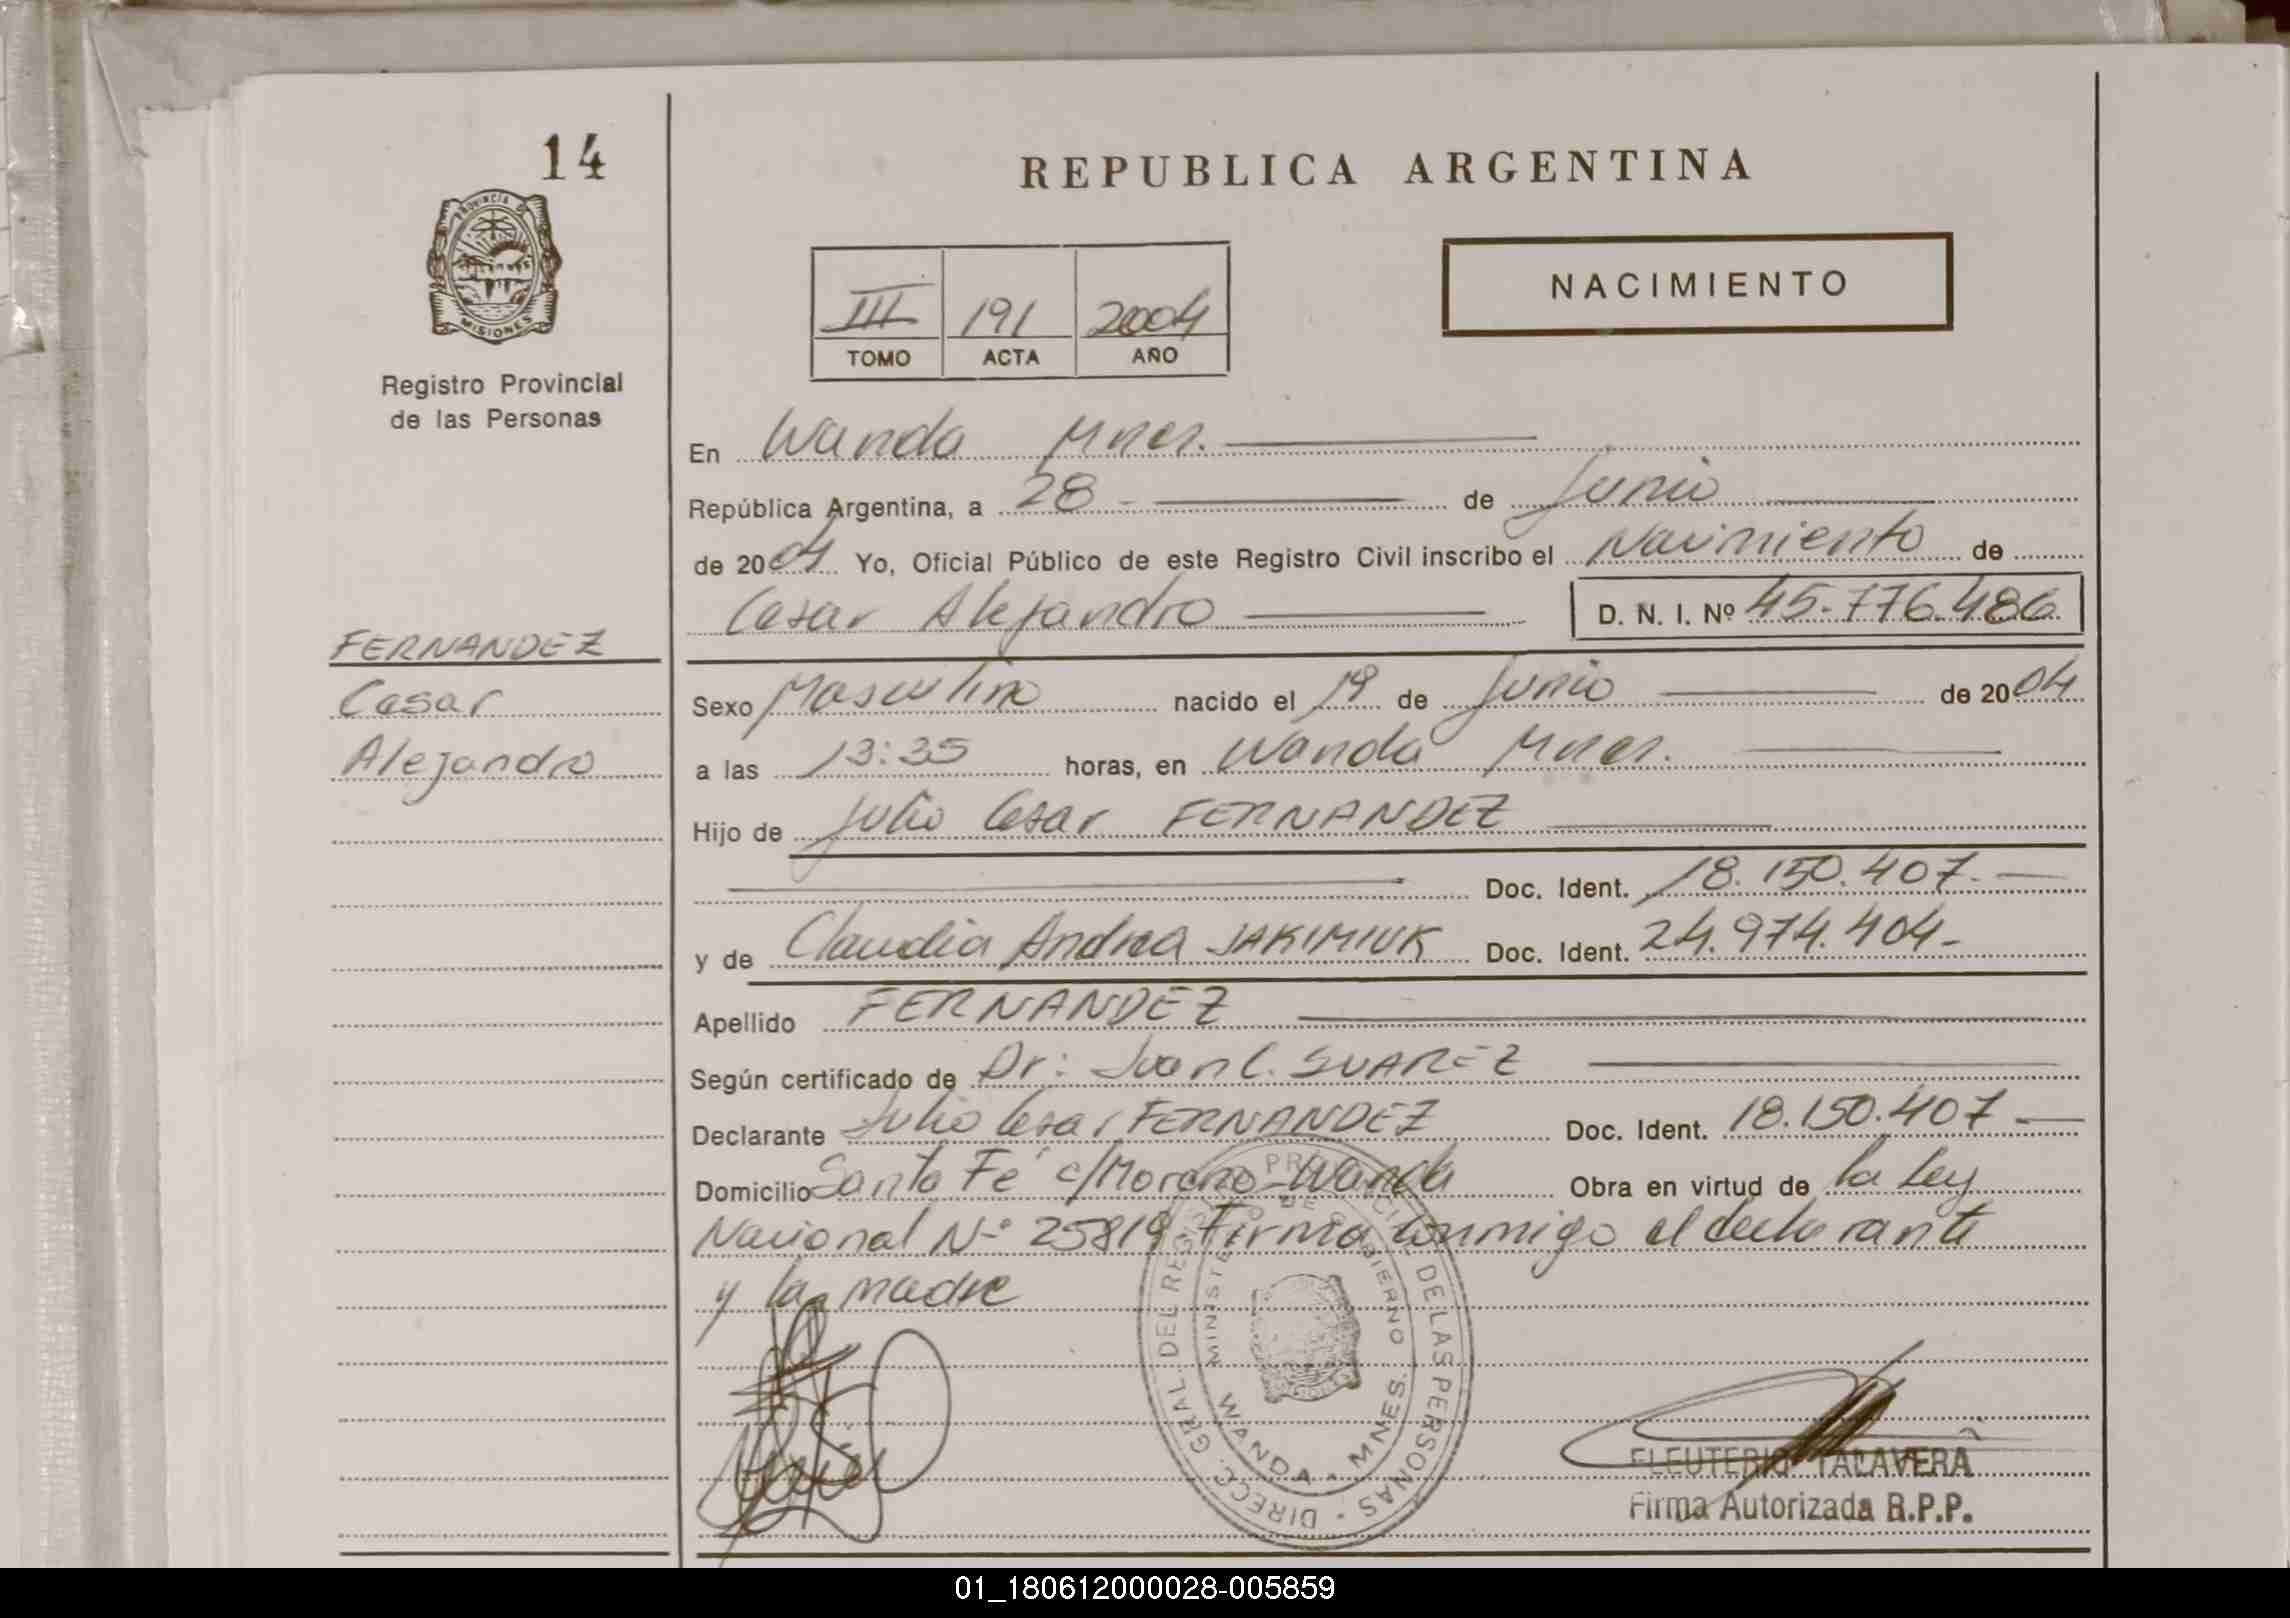 14
PROVINCIA DE
MISIONES
Registro Provincial
de las Personas
REPUBLICA ARGENTINA
NACIMIENTO
III 191 2004
TOMO ACTA AÑO
En Wanda Mnes.
República Argentina, a 28 de Junio
de 2004 Yo, Oficial Público de este Registro Civil inscribo el Nacimiento de
Cesar Alejandro D. N. I. Nº 45.776.486
FERNANDEZ
Cesar
Alejandro
Sexo Masculino nacido el 19 de Junio de 2004
a las 13:35 horas, en Wanda Mnes.
Hijo de Julio Cesar FERNANDEZ
Doc. Ident. 18.150.407.
y de Claudia Andrea JAKIMIUK Doc. Ident. 24.974.404-
Apellido FERNANDEZ
Según certificado de Dr: Juan C. SUAREZ
Declarante Julio Cesar FERNANDEZ Doc. Ident. 18.150.407
Domicilio Santa Fé c/Moreno-Wanda Obra en virtud de la Ley
Nacional Nº 25819 Firma conmigo el declarante
y la madre
DIRECC. GRAL. DEL REGISTRO PROVINCIAL DE LAS PERSONAS
MINISTERIO DE GOBIERNO
WANDA - MNES.
ELEUTERIO TALAVERA
Firma Autorizada R.P.P.
01_180612000028-005859